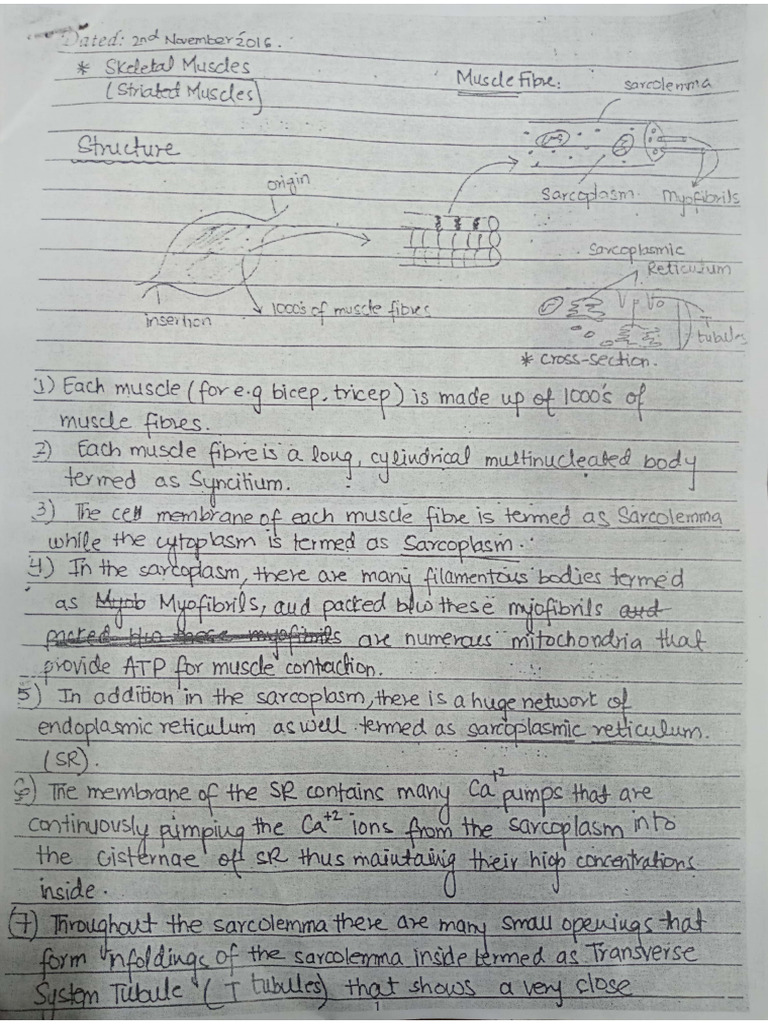 Dated: 2nd November 2016.
* Skeletal Muscles
(Striated Muscles)
Muscle Fibre:
sarcolemma
Structure
origin
Sarcoplasm.
Myofibrils
Sarcoplasmic
Reticulum
insertion
1000's of muscle fibres
T
tubules
* cross-section.
1) Each muscle (for e.g bicep, tricep) is made up of 1000's of
muscle fibres.
2) Each muscle fibre is a long, cylindrical multinucleated body
termed as Syncitium.
3) The cell membrane of each muscle fibre is termed as Sarcolemma
while the cytoplasm is termed as Sarcoplasm.
4) In the sarcoplasm, there are many filamentous bodies termed
as Myob Myofibrils, and packed b/w these myofibrils and
packed b/w these myofibrils are numerous mitochondria that
provide ATP for muscle contaction.
5) In addition in the sarcoplasm, there is a huge network of
endoplasmic reticulum as well termed as sarcoplasmic reticulum.
(SR).
6) The membrane of the SR contains many Ca+2 pumps that are
continuously pumping the Ca+2 ions from the sarcoplasm into
the cisternae of SR thus maintaing their high concentrations
inside.
(7) Throughout the sarcolemma there are many small openings that
form infoldings of the sarcolemma inside termed as Transverse
System Tubule (T tubules) that shows a very close
1